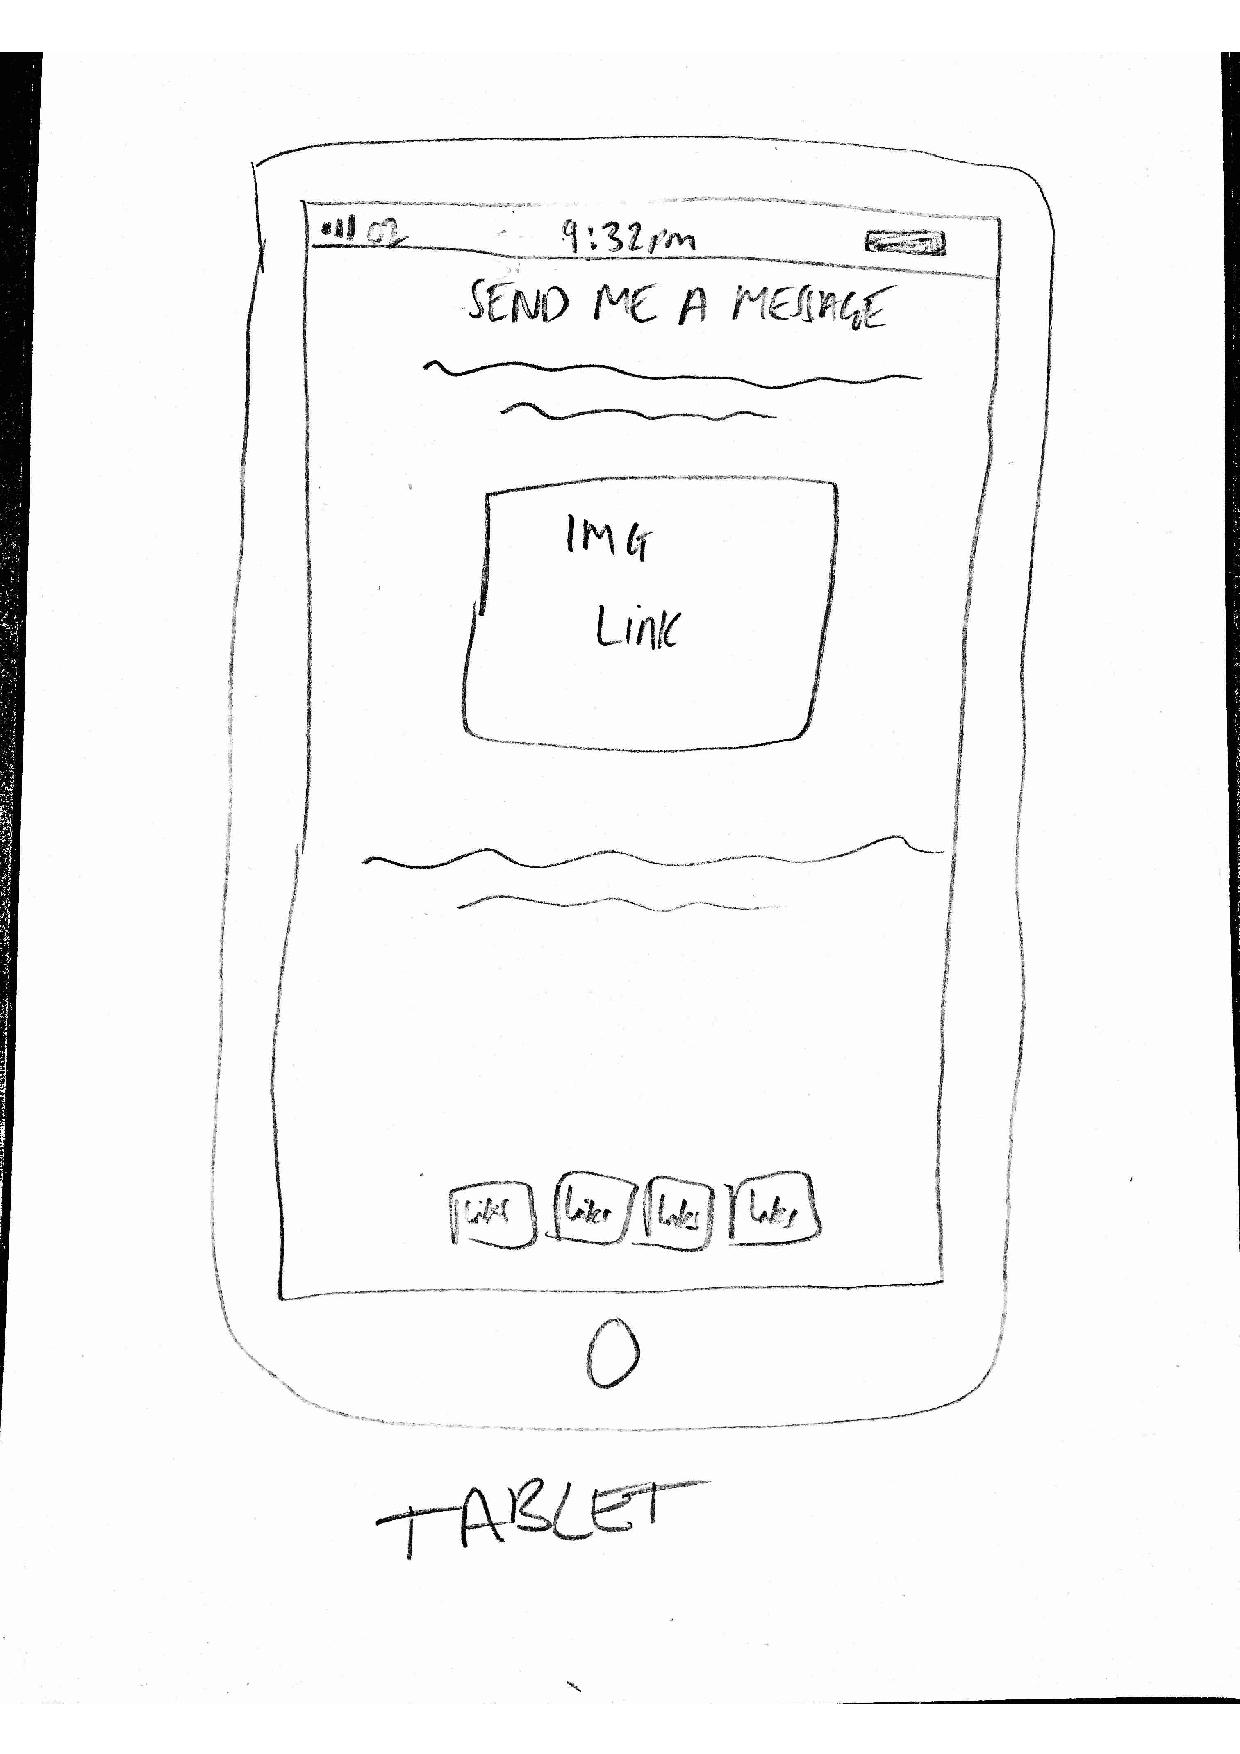 02 9:32pm
SEND ME A MESSAGE
IMG
Link
Links Links Links Links
TABLET